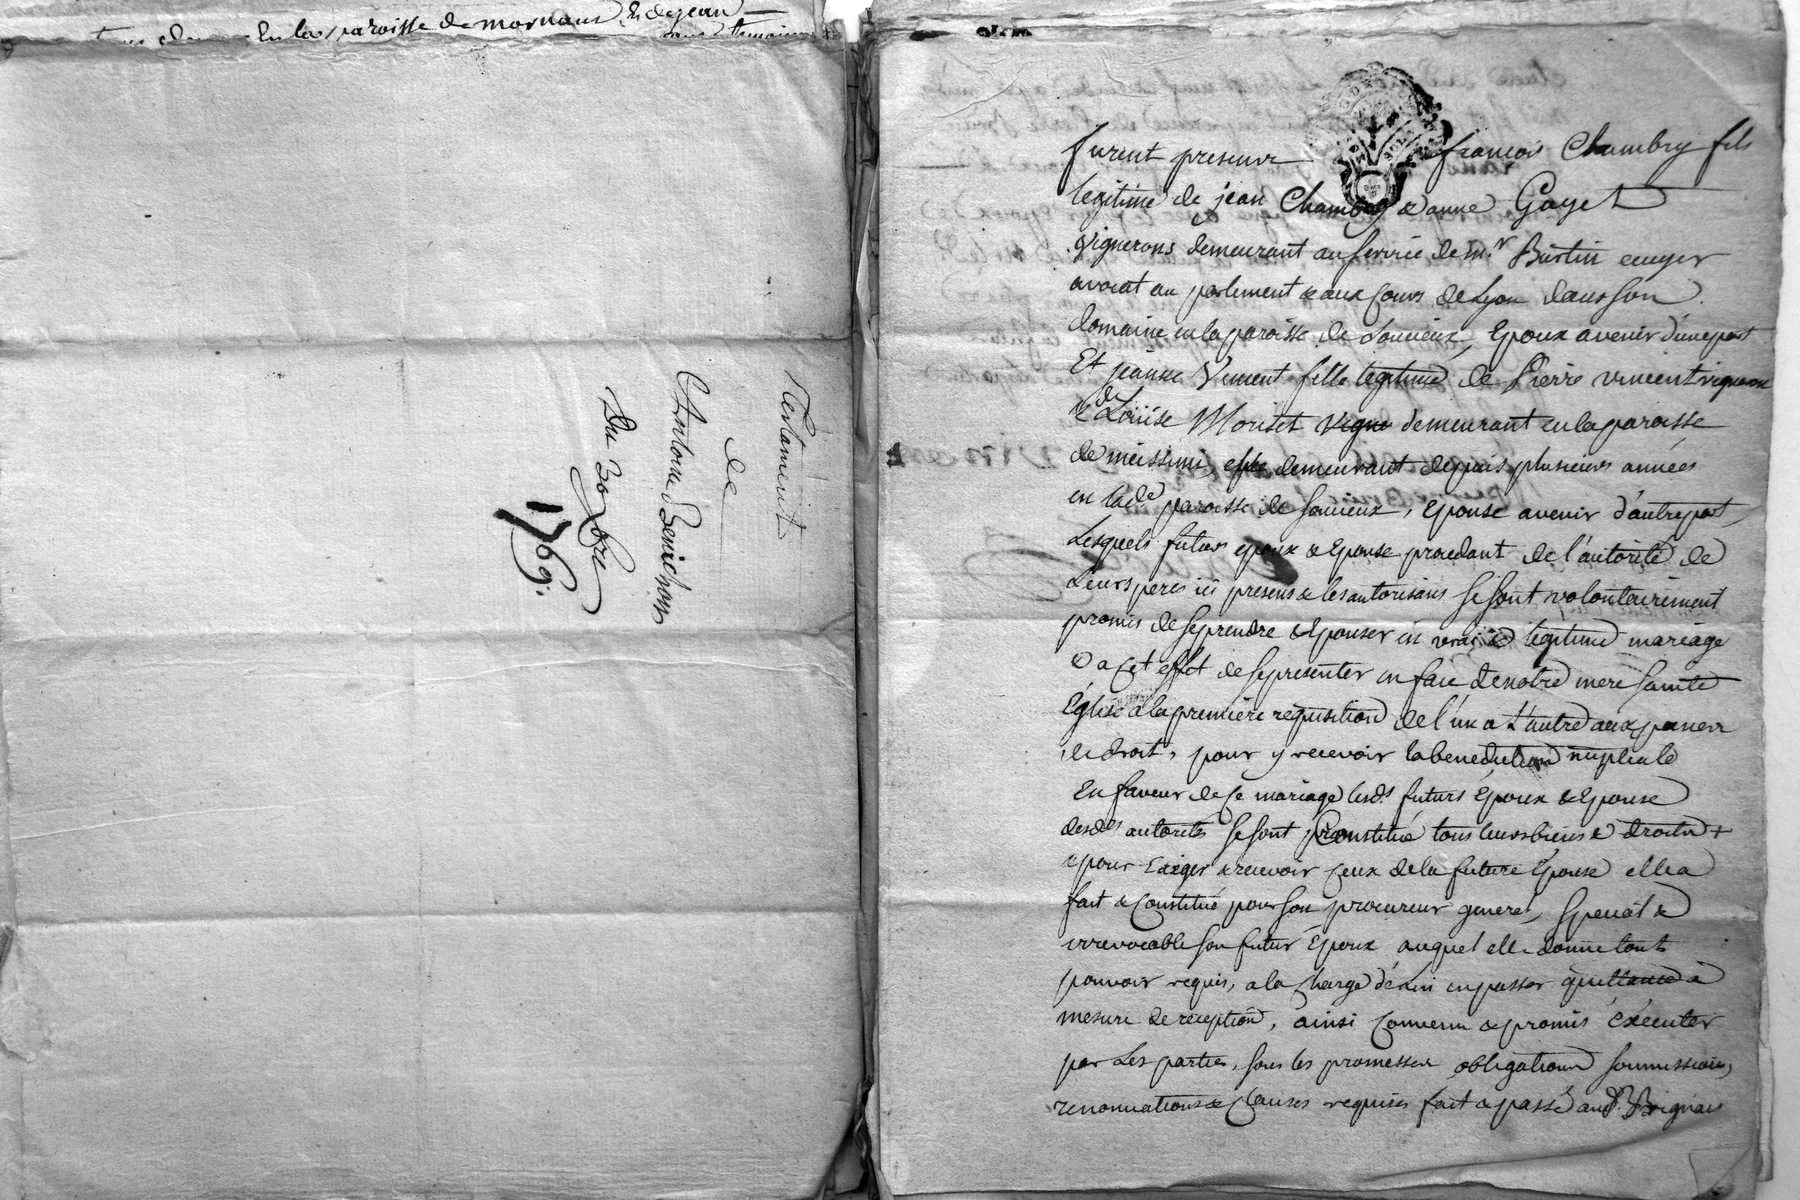 en la paroisse de mornant, & de jean
Testament
de
Antoine Benichon
Du 30 9bre
1769.
furent presens françois Chambry fils
legitime de jean Chambry & anne Gayet
vignerons demeurant au service de Mr. Burtin ecuyer
avocat au parlement & aux Cours de Lyon dans son
domaine en la paroisse de Soucieux, Epoux avenir d'une part
Et jeanne Vincent fille legitime de Pierre vincent vigneron
& de Louise Monset vigne demeurant en la paroisse
de meissimi elle demeurant depuis plusieurs années
en lade paroisse de Soucieux, Epouse avenir d'autre part,
Lesquels futurs epoux & Epouse procedant de l'autorité de
Leurs peres ici presens & les autorisans se sont volontairement
promis de se prendre & Epouser en vrai & legitime mariage
& a Cet effet de se presenter en face de notre mere sainte
Eglise a la premiere requisition de l'un a L'autre aux peines
de droit, pour y recevoir la benediction nuptiale
En faveur de Ce mariage lesds futurs Epoux & Epouse
desdes autorités se sont Constitué tous leurs biens & droits +
& pour Exiger & recevoir Ceux de la future Epouse elle a
fait & Constitué pour son procureur general, special &
irrevocable son futur Epoux auquel elle donne tout
pouvoir requis, a la Charge d'en passer quittance à
mesure de reception, ainsi Convenu & promis éxécuter
par Les parties, sous les promesses obligations soumissions,
renonciations & Clauses requises fait & passé aud. Brignais